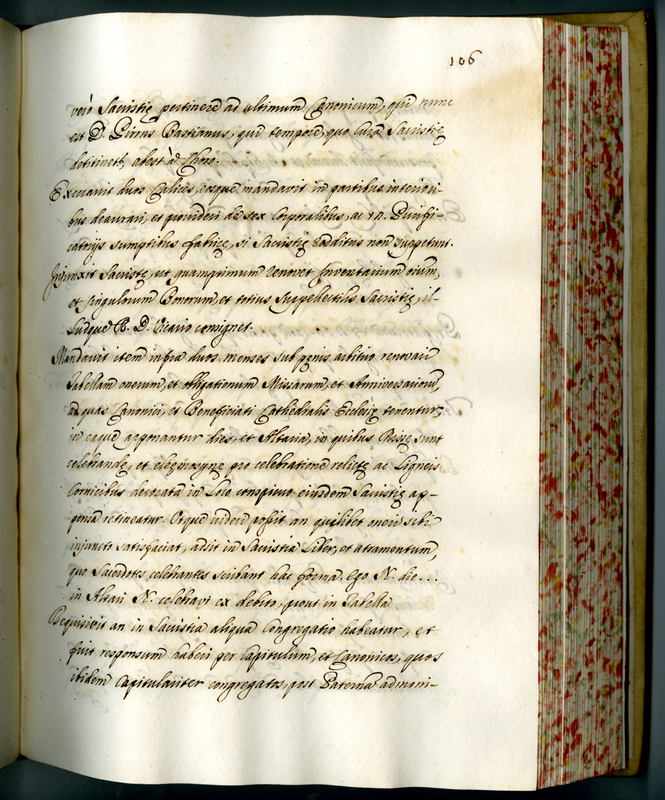 106
verò Sacristię pertinere ad ultimum Canonicum, qui nunc
est D. Pirrus Bastianus, qui tempore, quo curā Sacristię
detitinet, abest à Choro.
Execravit duos Calices, eosque mandavit in partibus interiori-
bus deaurari, et provideri de sex Corporalibus, ac 12. Purifi-
catorijs sumptibus fabricę, si Sacristię redditus non suppetunt.
Injunxit Sacristę, ut quamprimum renovet Inventarium oium,
et singulorum Bonorum, et totius suppellectilis Sacristię, il-
ludque R. D. Vicario consignet.
Mandavit item infra duos menses sub penis arbitrio renovari
Tabellam onerum, et obligationum Missarum, et Anniversariorū,
ad quas Canonici, et Beneficiati Cathedralis Ecclesię tenentur,
in eaque apponantur dies, et Altaria, in quibus Missę sunt
celebrandę, et elęmosynę pro celebratione relictę ac Ligneis
Cornicibus decorata in Loco conspicuo eiusdem Sacristię ap-
pensa retineatur. Utque videri possit an quilibet oneri sibi
injuncto satisfaciat, adsit in Sacristia Liber, et atramentum,
quo Sacerdotes celebrantes scribant hac forma Ego N. die...
in Altari N. celebravi ex debito, prout in Tabella
Requisivit an in Sacristia aliqua Congregatio habeatur, et
fuit responsum haberi per Capitulum, et Canonicos, quos
ibidem Capitulariter congregatos, post Paterna admini-